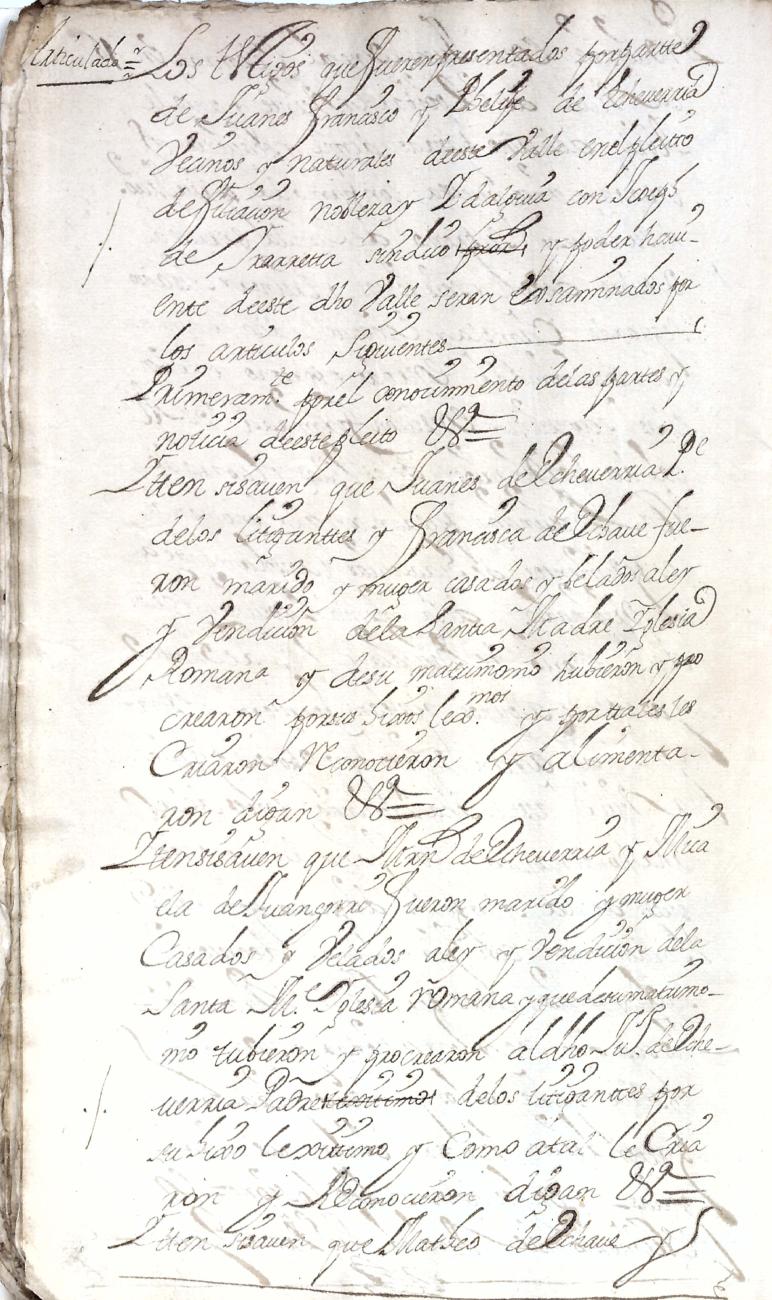 Articulado=
Los testigos que fueren presentados por partte
de Juanes Francisco y Phelipe de Echeverria
Vecinos y naturales deeste Valle enel pleitto
de filiacion nobleza y Idalguia con Joseph
de Yrarreta sindico y poder havi-
ente deeste dho Valle seran exsaminados por
los articulos siguientes
Primeramte. porel conocimiento delas partes y
noticia deeste pleito &a=
Itten sisaven que Juanes de Echeverria Pe.
delos litiganttes y Francisca de Echave fue-
ron marido y muger casados y belados aley
y Vendicion dela Santta Madre Yglesia
Romana y desu matrimonio hubieron y pro
crearon porsus hijos lexmos. y por ttales les
Criaron Reconocieron y alimenta-
ron digan &a=
Ittensisaven que Mrn de Echeverria y Mica
ela de fueron marido y muger
Casados y Velados aley y Vendicion dela
Santa Me. Yglesia Romana y quedesumatrimo-
nio tubieron y procrearon aldho Ju. de Eche-
verria Padre lexittimo delos litiganttes por
su hixo lexittimo y Como atal le Cria
ron y Reconocieron digan &a=
Itten sisaven que Matheo de Echave y